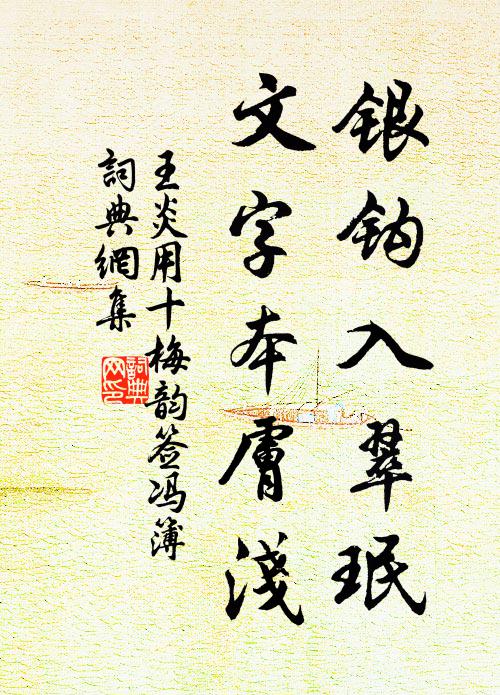 银钩入翠珉
文字本膚淺
王炎用十梅韵签冯簿
詞典網集
詞典網印